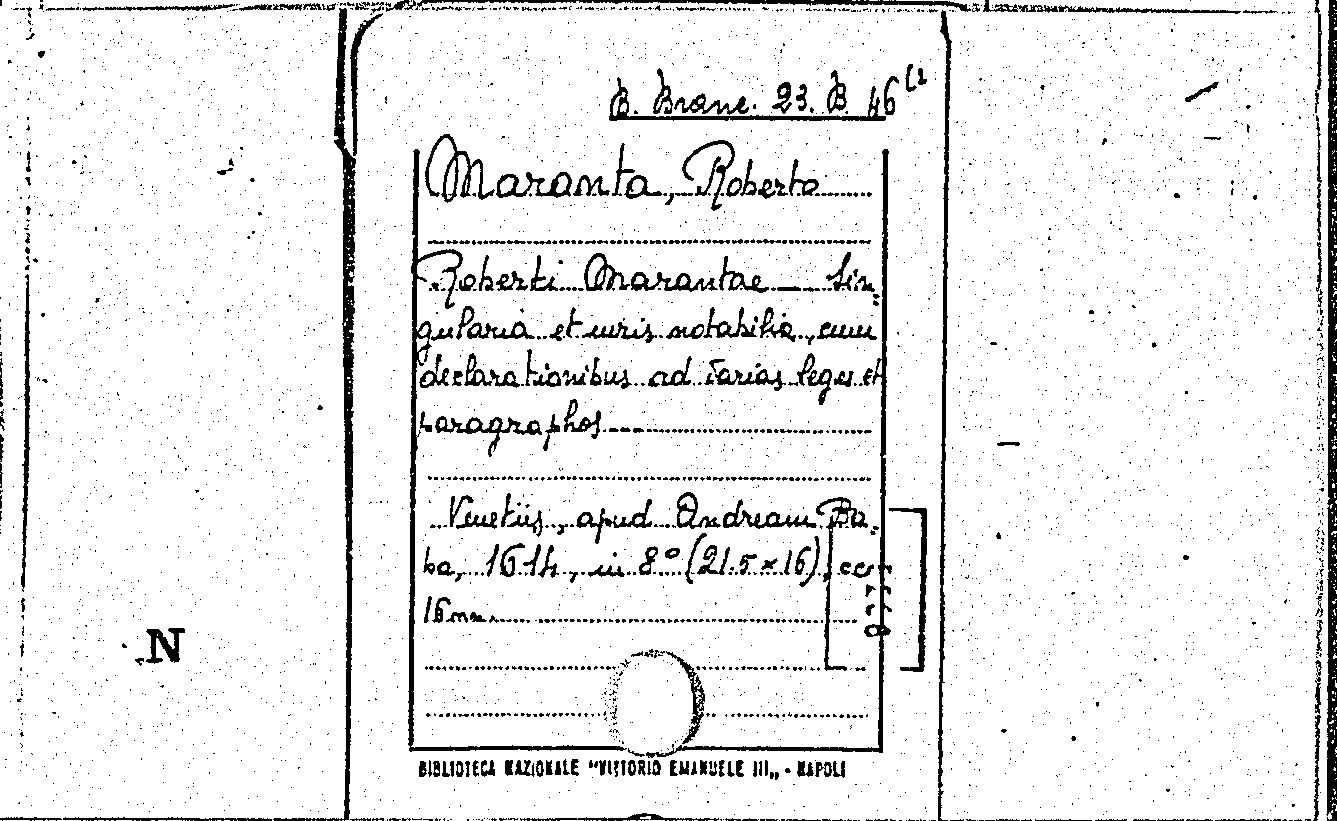 B. Branc. 23. B 46 (2
Maranta, Roberto
Roberti Marantae — Sin-
gularia et iuris notabilia, cum
declarationibus ad varias leges et
paragraphos
Venetiis, apud Andream Ba-
ba, 1614, in 8° (21.5 x 16), cc
16 nn.
N
BIBLIOTECA NAZIONALE "VITTORIO EMANUELE III„ - NAPOLI